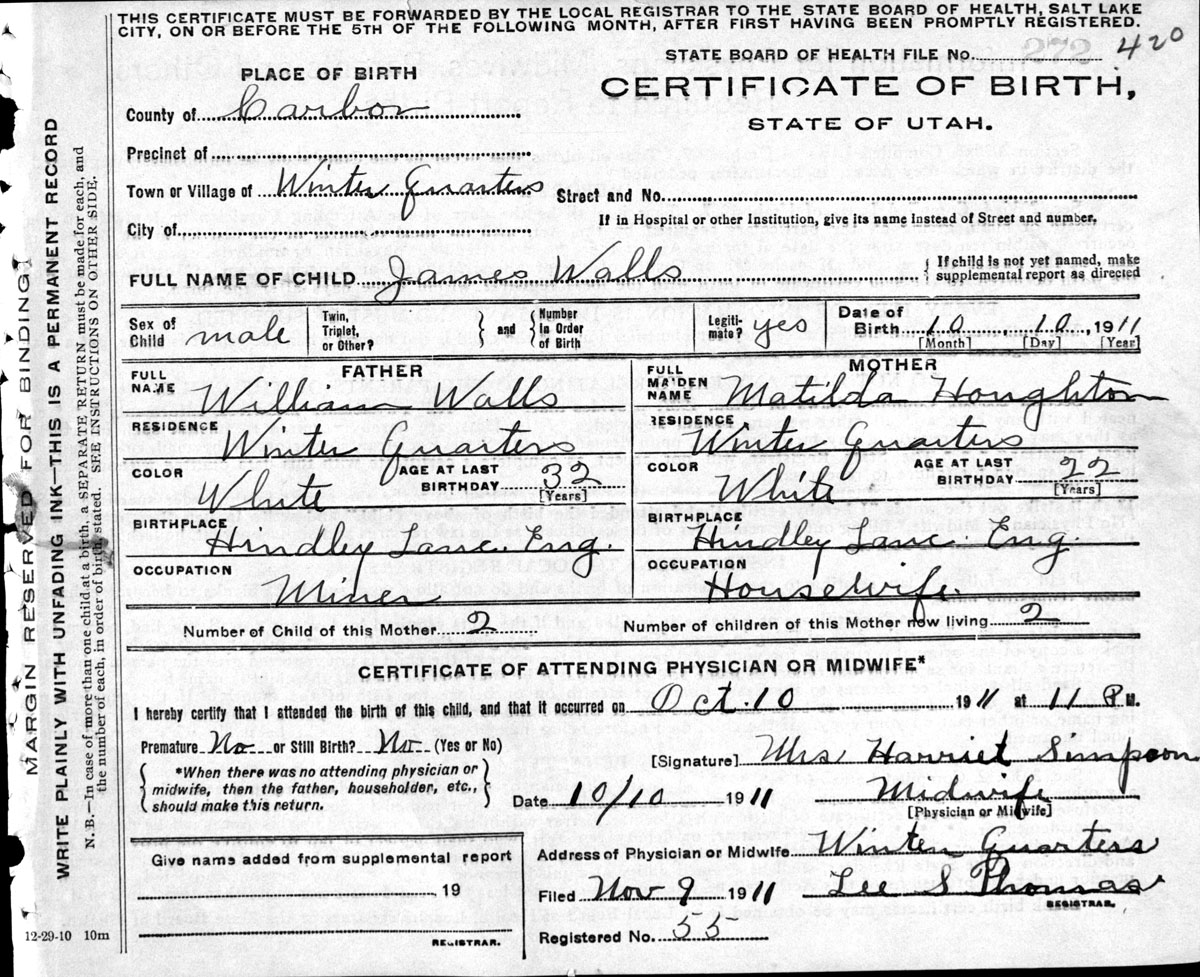 THIS CERTIFICATE MUST BE FORWARDED BY THE LOCAL REGISTRAR TO THE STATE BOARD OF HEALTH, SALT LAKE
CITY, ON OR BEFORE THE 5TH OF THE FOLLOWING MONTH, AFTER FIRST HAVING BEEN PROMPTLY REGISTERED.
STATE BOARD OF HEALTH FILE No. 420
PLACE OF BIRTH
CERTIFICATE OF BIRTH,
STATE OF UTAH.
County of Carbon
Precinct of
Town or Village of Winter Quarters Street and No.
If in Hospital or other Institution, give its name instead of Street and number.
City of
FULL NAME OF CHILD James Walls { If child is not yet named, make
supplemental report as directed
Sex of Child male Twin, Triplet, or Other? } and { Number in Order of Birth Legiti-mate? yes Date of Birth 10, 10, 1911
[Month] [Day] [Year]
FATHER MOTHER
FULL NAME William Walls FULL MAIDEN NAME Matilda Houghton
RESIDENCE Winter Quarters RESIDENCE Winter Quarters
COLOR White AGE AT LAST BIRTHDAY 32 [Years] COLOR White AGE AT LAST BIRTHDAY 22 [Years]
BIRTHPLACE Hindley Lanc. Eng. BIRTHPLACE Hindley Lanc. Eng.
OCCUPATION Miner OCCUPATION Housewife.
Number of Child of this Mother 2 Number of children of this Mother now living 2
CERTIFICATE OF ATTENDING PHYSICIAN OR MIDWIFE*
I hereby certify that I attended the birth of this child, and that it occurred on Oct. 10 1911 at 11 P M.
Premature No or Still Birth? No (Yes or No)
{ *When there was no attending physician or
midwife, then the father, householder, etc.,
should make this return. }
[Signature] Mrs Harriet Simpson
Midwife
[Physician or Midwife]
Date 10/10 1911
Give name added from supplemental report
19
REGISTRAR.
Address of Physician or Midwife Winter Quarters
Filed Nov 9 1911 Lee S Thomas
REGISTRAR.
Registered No. 55
12-29-10 10m
MARGIN RESERVED FOR BINDING!
WRITE PLAINLY WITH UNFADING INK—THIS IS A PERMANENT RECORD
N. B.—In case of more than one child at a birth, a SEPARATE RETURN must be made for each, and
the number of each, in order of birth, stated. SEE INSTRUCTIONS ON OTHER SIDE.